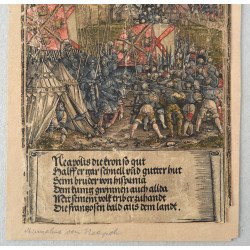 Neapolis die kron so gut
Halff er gar schnell vnd guetter hut
Seim bruder von hispania
Dem kunig gwynnen auch allda
Mit seinem volk triber zuhandt
Die frantzosen bald aus dem lant.
von Neapoli